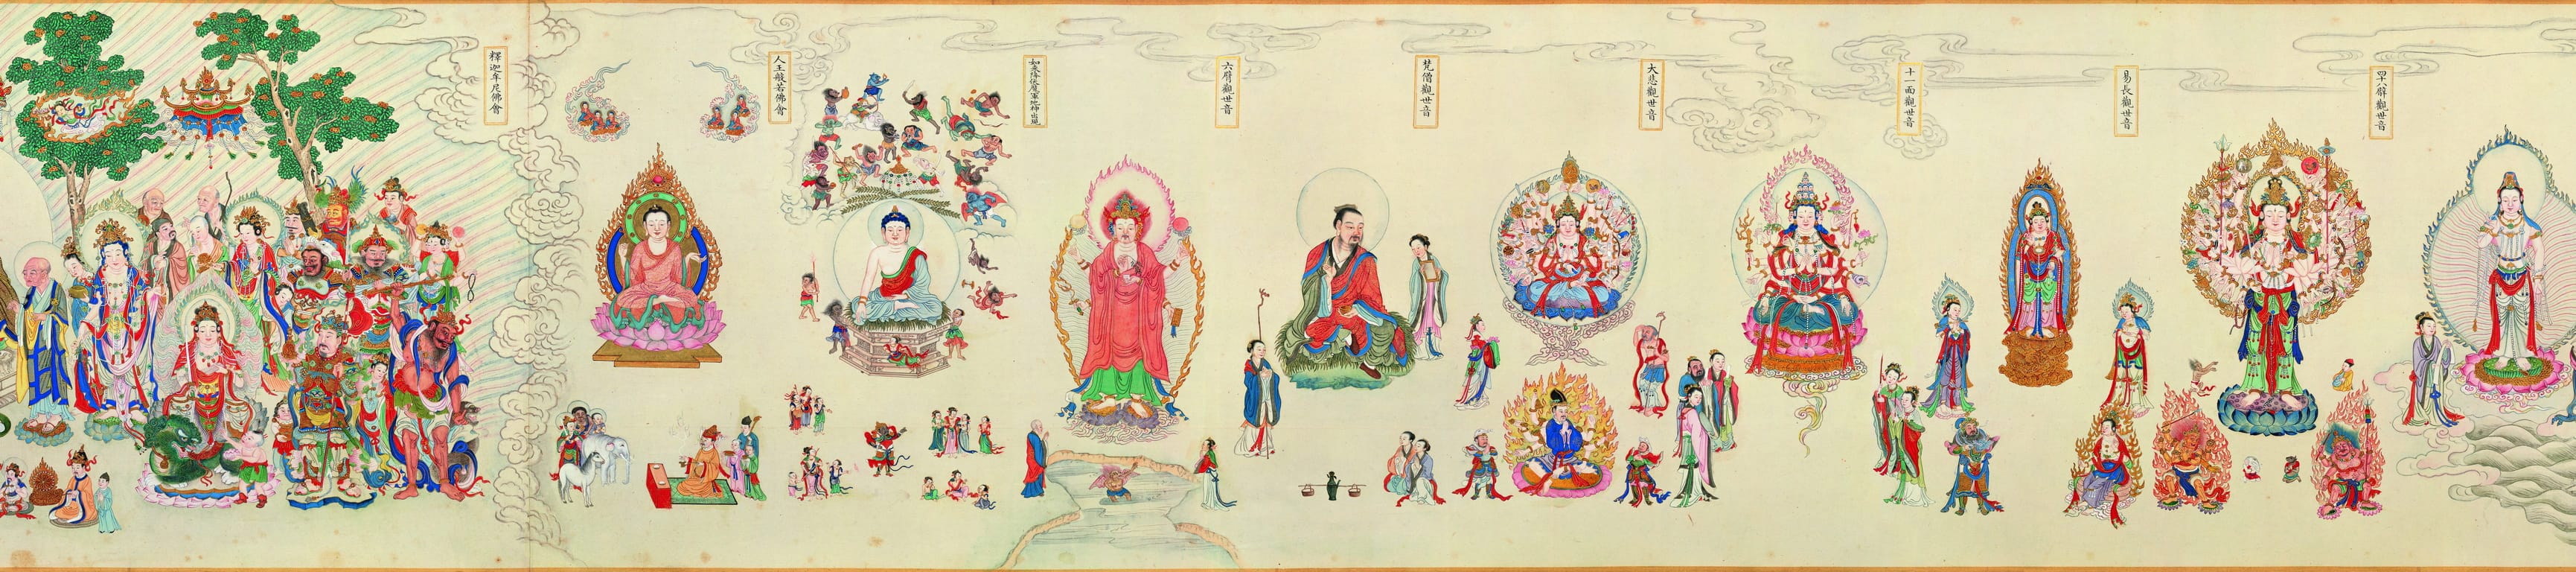 四十八臂觀世音
易長觀世音
十一面觀世音
大悲觀世音
梵僧觀世音
六臂觀世音
如來降伏魔軍地神出現
人王般若佛會
釋迦牟尼佛會